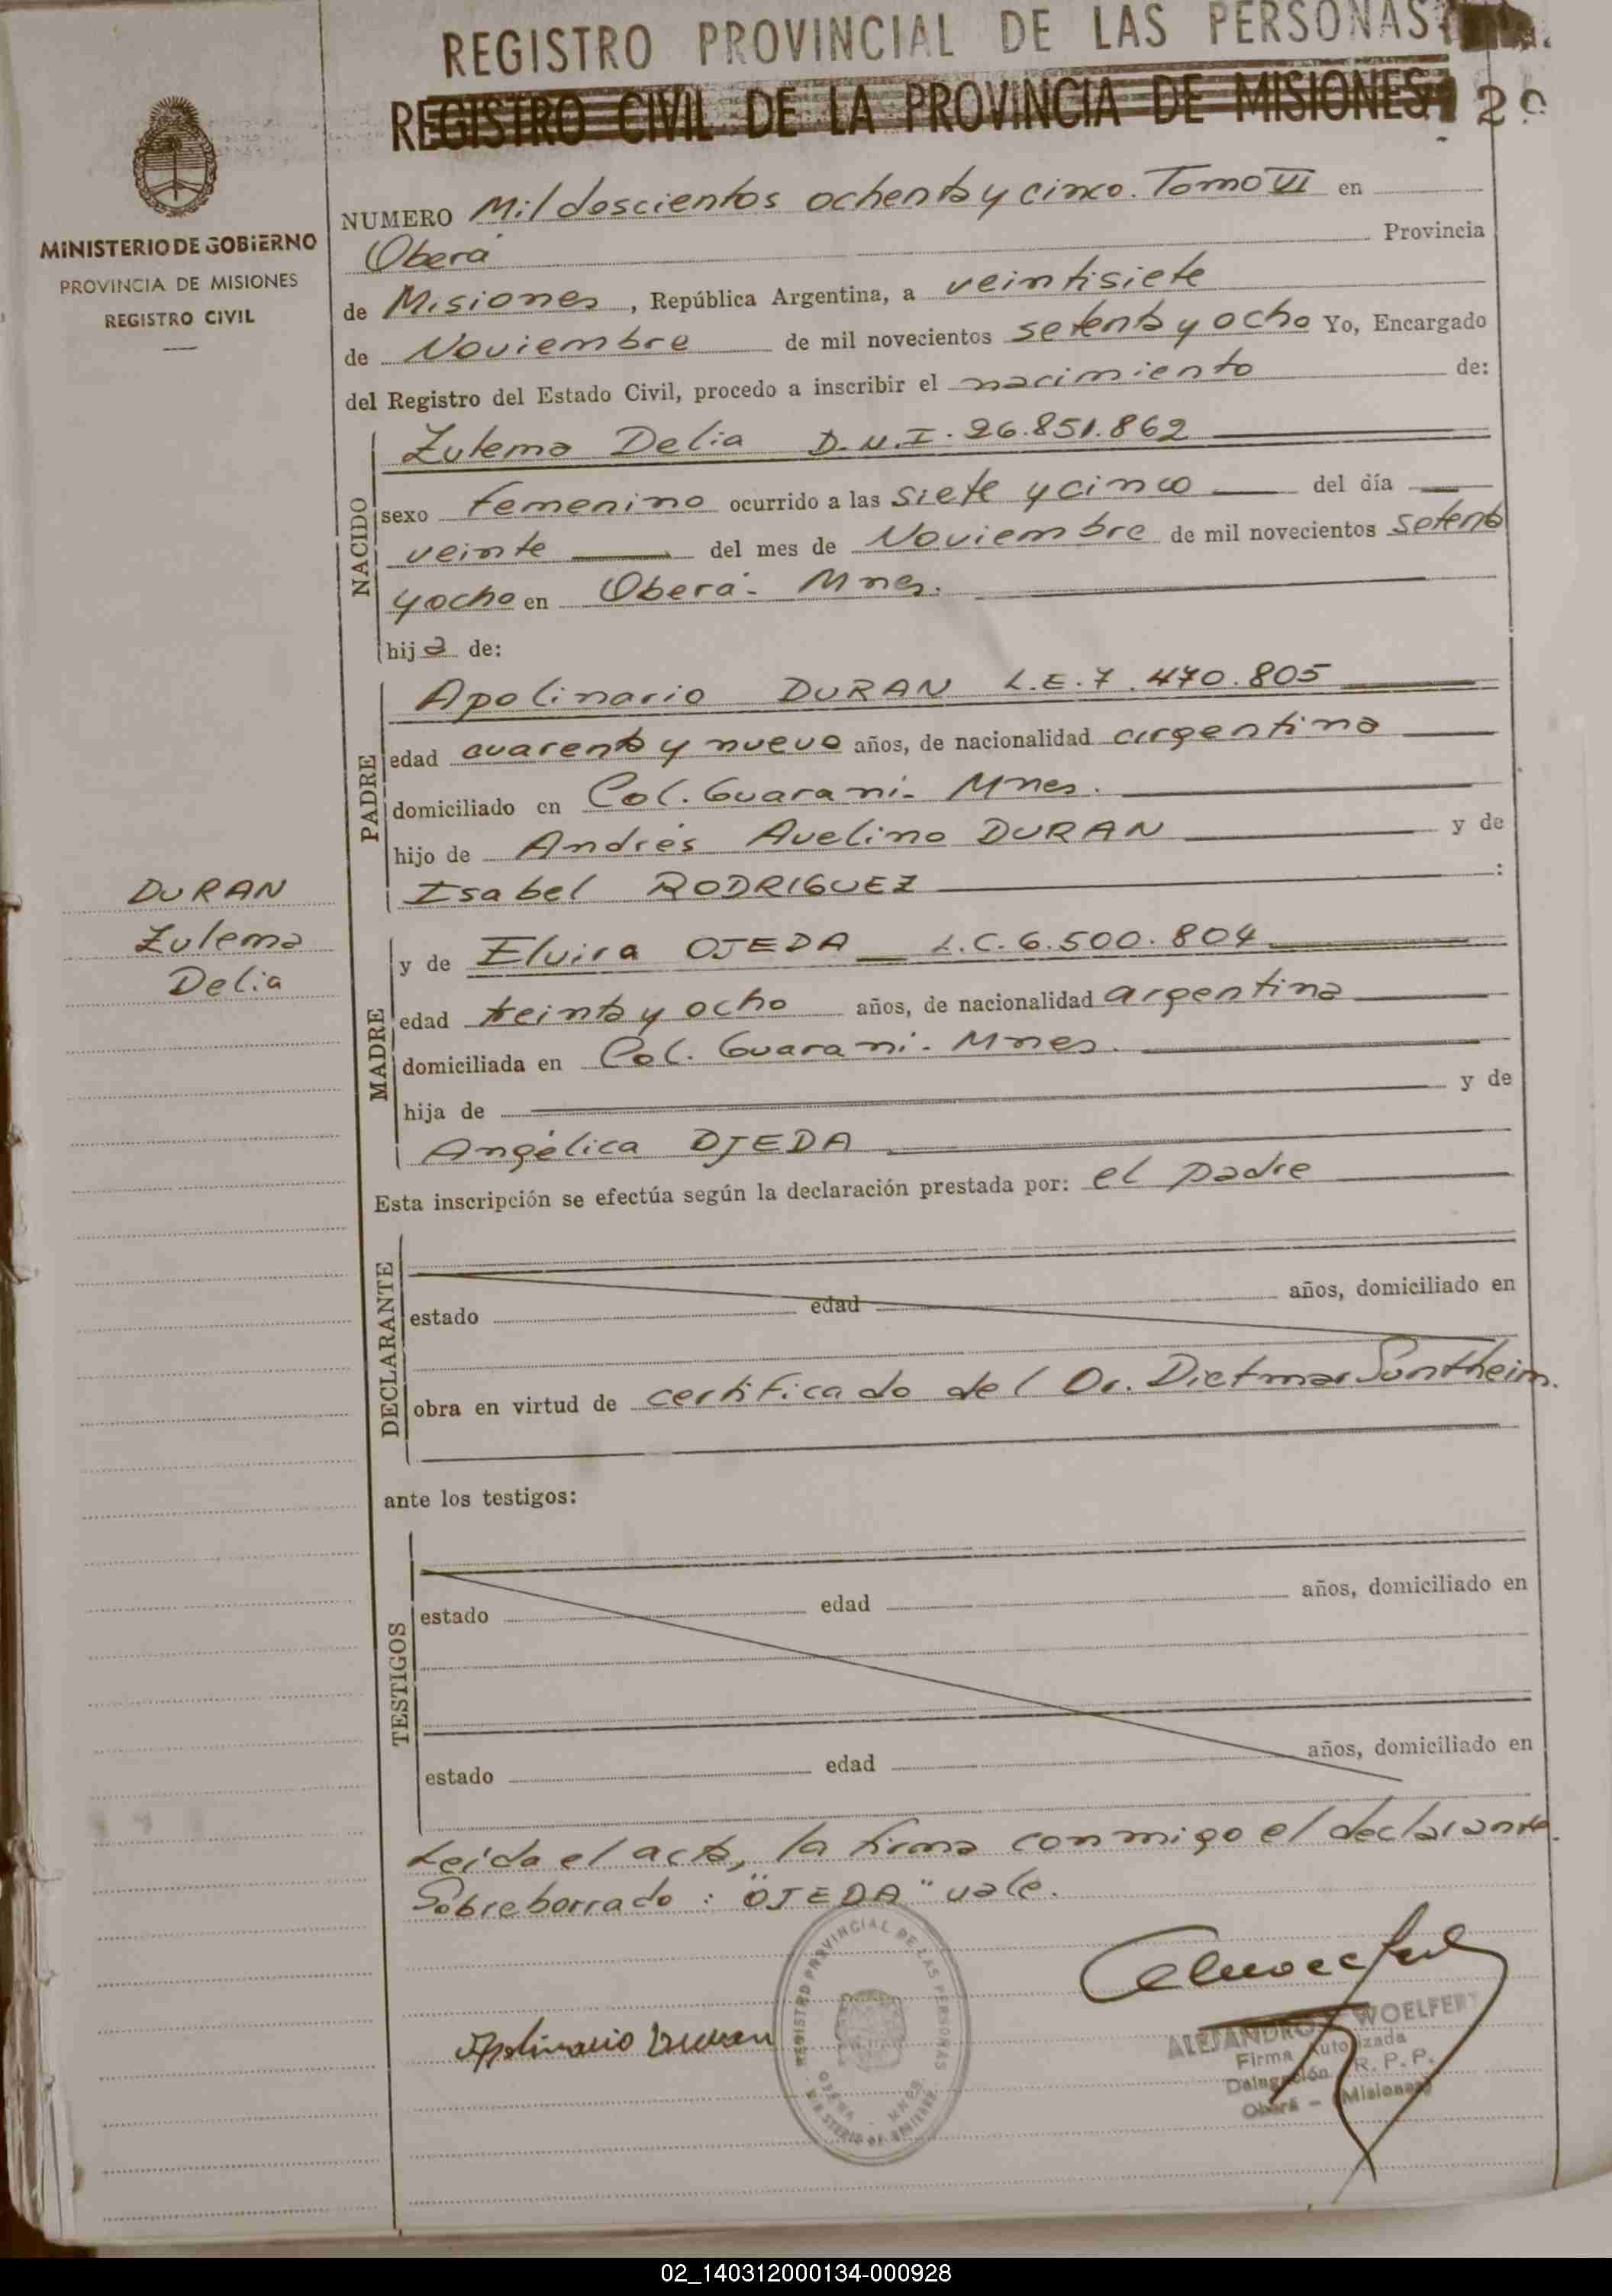 REGISTRO PROVINCIAL DE LAS PERSONAS
REGISTRO CIVIL DE LA PROVINCIA DE MISIONES
MINISTERIO DE GOBIERNO
PROVINCIA DE MISIONES
REGISTRO CIVIL
NUMERO Mil doscientos ochenta y cinco. Tomo VI en
Oberá Provincia
de Misiones, República Argentina, a veintisiete
de Noviembre de mil novecientos setenta y ocho Yo, Encargado
del Registro del Estado Civil, procedo a inscribir el nacimiento de:
NACIDO
Zulema Delia D.N.I. 26.851.862
sexo femenino ocurrido a las siete y cinco del día
veinte del mes de Noviembre de mil novecientos setenta
y ocho en Oberá - Mnes.
hija de:
PADRE
Apolinario DURAN L.E. 7.470.805
edad cuarenta y nueve años, de nacionalidad argentina
domiciliado en Col. Guaraní - Mnes.
hijo de Andrés Avelino DURAN y de
Isabel RODRIGUEZ :
DURAN
Zulema
Delia
MADRE
y de Elvira OJEDA L.C. 6.500.804
edad treinta y ocho años, de nacionalidad argentina
domiciliada en Col. Guaraní - Mnes.
hija de y de
Angélica OJEDA
Esta inscripción se efectúa según la declaración prestada por: el padre
DECLARANTE
estado edad años, domiciliado en
obra en virtud de certificado del Dr. Dietmar Sontheim.
ante los testigos:
TESTIGOS
estado edad años, domiciliado en
estado edad años, domiciliado en
Leída el acta, la firma conmigo el declarante.
Sobreborrado: "OJEDA" vale.
REGISTRO PROVINCIAL DE LAS PERSONAS
Apolinario Duran
ALEJANDRO WOELFERT
Firma Autorizada
Delegación R. P. P.
Oberá - (Misiones)
02_140312000134-000928